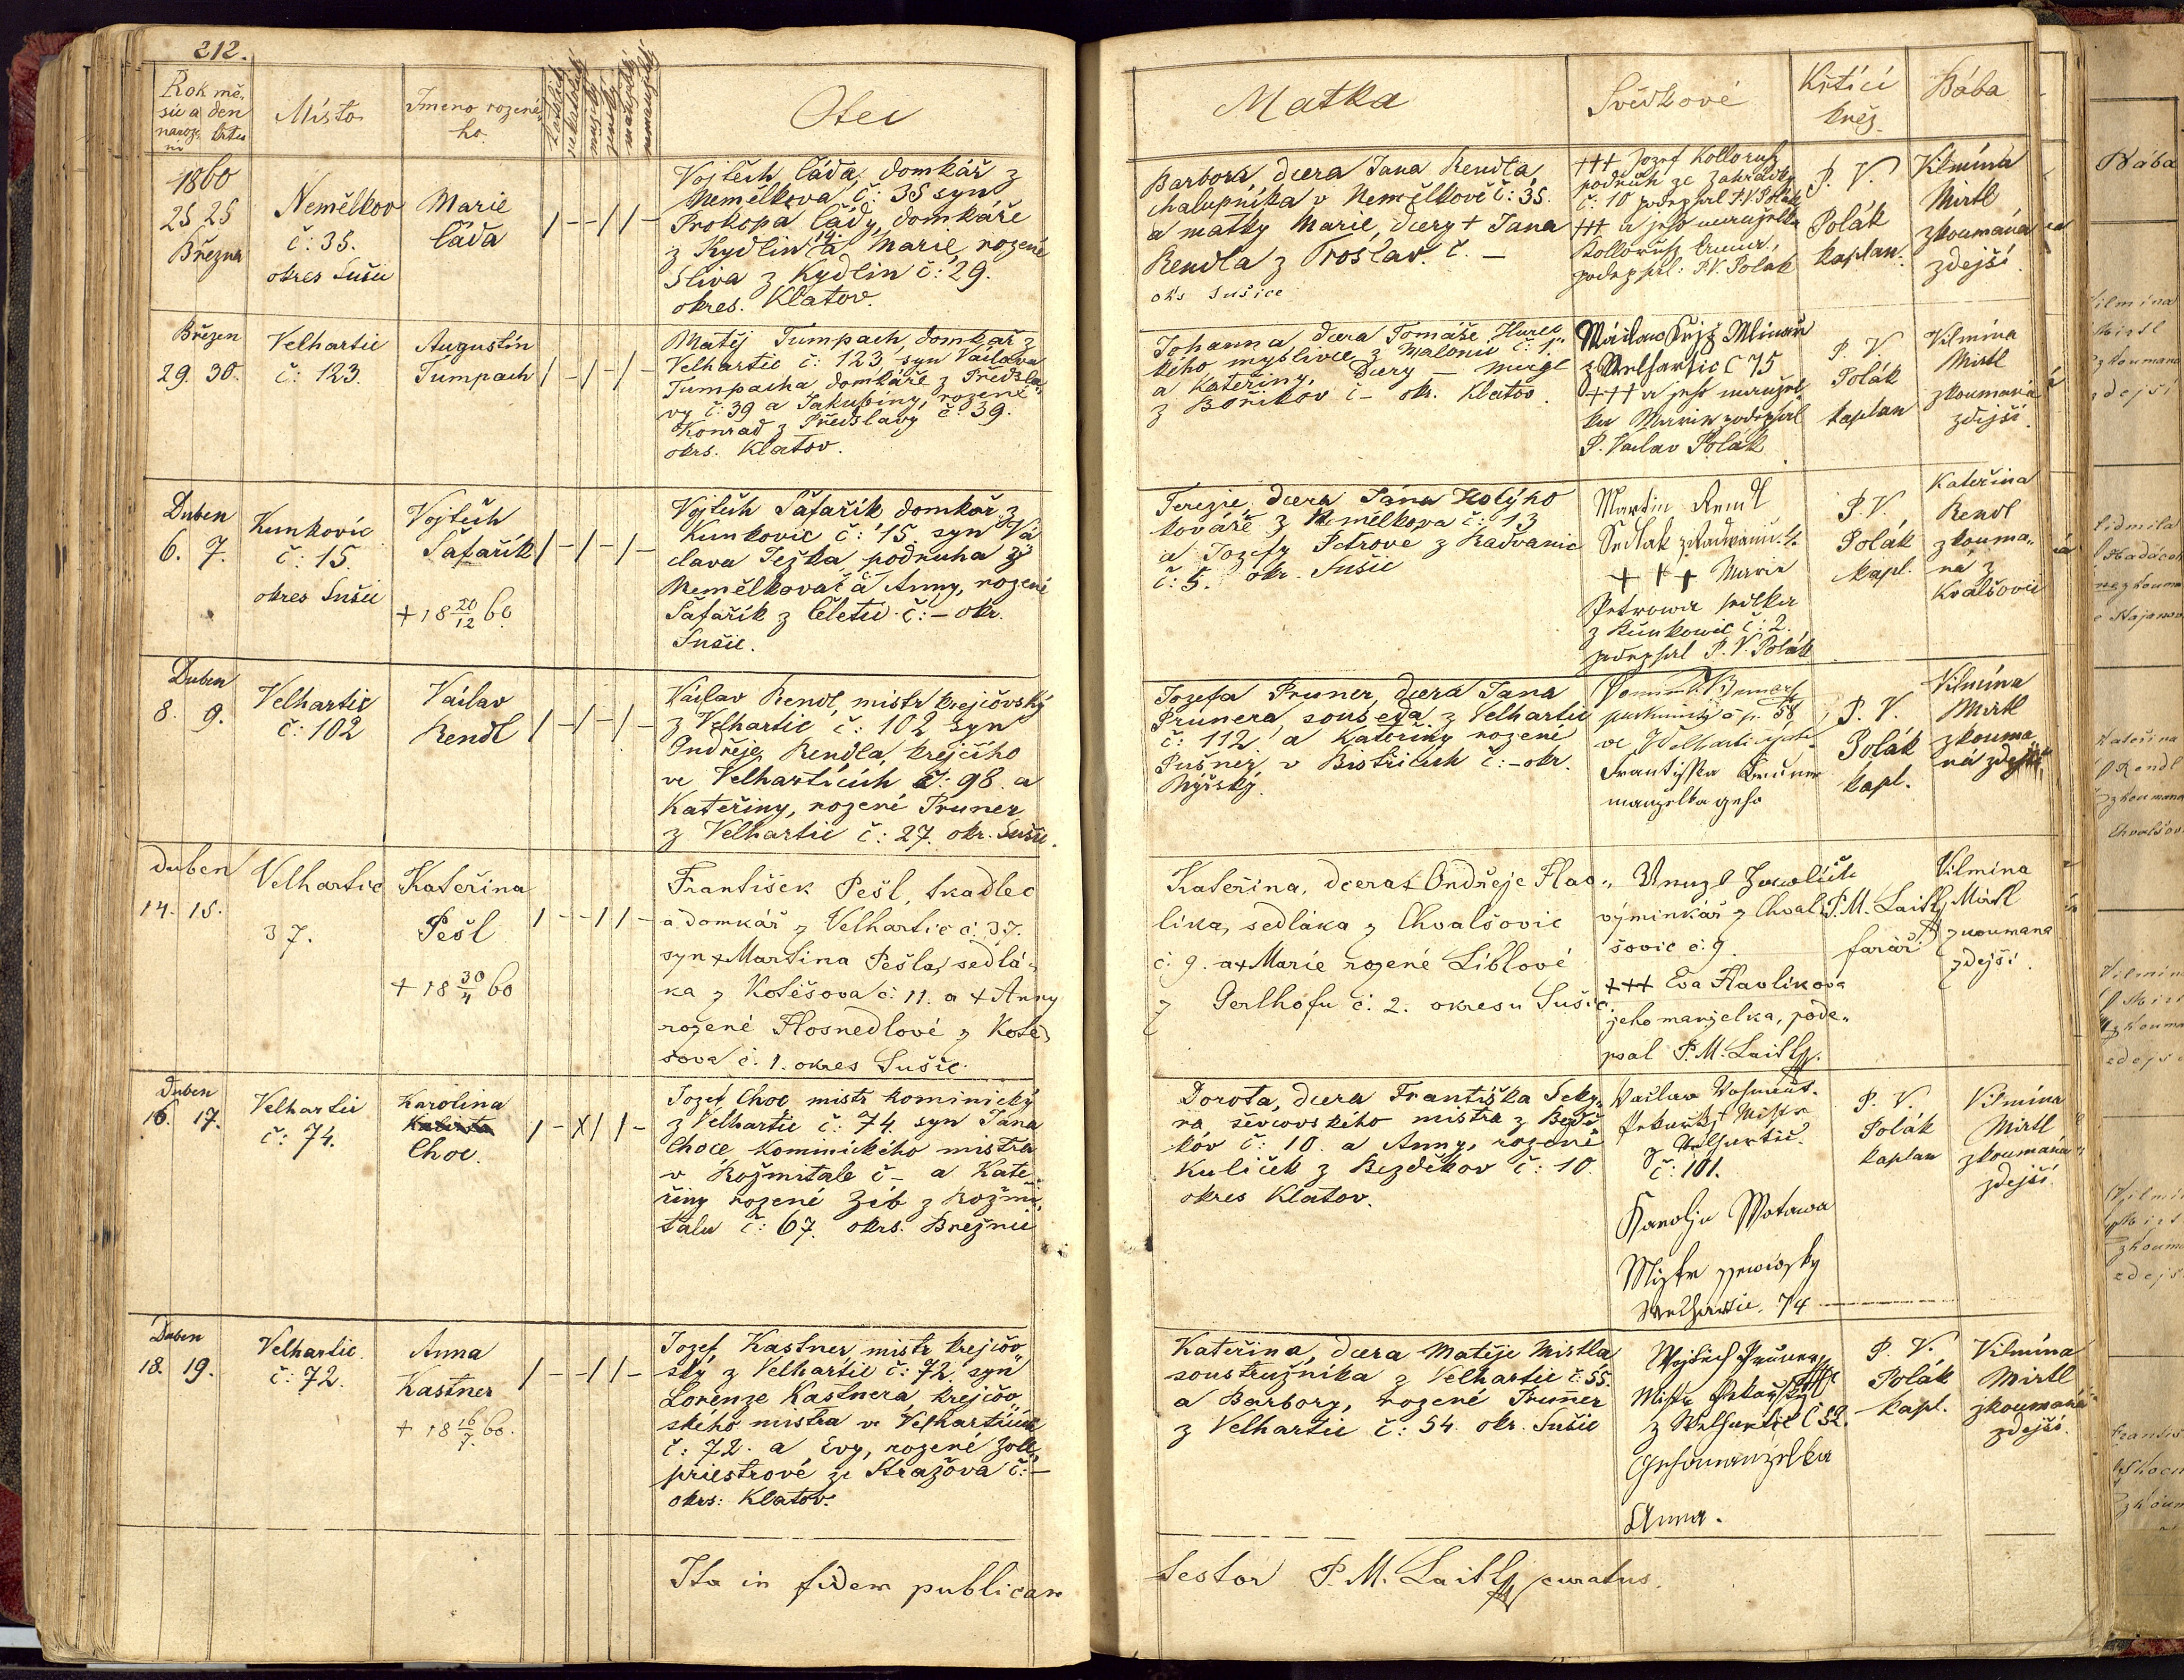 212.
Rok mě-
síc a den
naroz- křtu
ní
Místo
Jmeno rozené-
ho
katolick
nekatolick
mužský
ženský
manželský
nemanželský
Otec
Matka
Svědkové
Křtící
kněz
Bába
1860
25 25
Března
Nemělkov
č: 35.
okres Sušic
Marie
Čáda
Vojtěch Čáda, domkář z
Nemělkova č: 35 syn
Prokopa Čády, domkáře
z Kydlin 14. a Marie, rozené
Sliva z Kydlin č: 29.
okres. Klatov.
Barbora, dcera Jana Rendla,
chalupníka v Nemělkově č: 35.
a matky Marie, dcery + Jana
Rendla z Proslav č. –
oks Sušice
+++ Jozef Kollorutz
podruh ze Zahrádky
č: 10 podepsal P.V. Polák
+++ a jeho manželka
podepsal: P.V. Polak
P. V.
Polák
kaplan.
Vilmína
Mirtl
zkoumána
zdejší
Březen
29. 30.
Velhartic
č: 123.
Augustin
Tumpach
Matěj Tumpach, domkář z
Velhartic č: 123, syn Václava
Tumpacha domkáře z Předsla-
vy č: 39 a Jakubíny, rozené
Konrad z Předslavy č: 39.
okrs. Klatov.
Johanna dcera Tomáše Hurec
kého myslivce z Malonic č: 1."
a Kateřiny, Dcery – Meigl
z Bořikov č – ok. Klatov.
z Welhartic č 75
+++ a jeho manžel
ka Marie podepsal
P. Vaclav Polák
P. V.
Polák
kaplan
Vilmína
Mirtl
zkoumaná
zdejší.
Duben
6. 7.
Kunkovic
č: 15.
okres Sušic
Vojtěch
Šafařík
+ 18 20/12 60
Vojtěch Šafařík domkář z
Kunkovic č: 15. syn Vá
clava Ježka, podruha z
Nemělkova č – a Anny, rozené
Šafařík z Čeletic č: – okr.
Sušic.
Terezie, dcera Jána Holýho
kováře z Nemělkova č: 13
a Jozefy Petrove z Radvanic
č: 5. okr. Sušic
Martin Rendl
Sedlak z Radwanic 4.
+++ Marie
Petrowa sedlka
z Kunkowic č: 2.
podepsal P. V. Polák
P.V.
Polák
kapl.
Kateřina
Rendl
zkouma-
ná z
Kvalšovic
Duben
8. 9.
Velhartic
č: 102
Václav
Rendl
Václav Rendl, mistr krejčovský
z Velhartic č: 102 syn
Ondřeje Rendla, krejčího
ve Velharticích č: 98. a
Kateřiny, rozené Pruner
z Velhartic č: 27. okr. Sušic.
Jozefa Pruner, dcera Jana
Prunera souseda z Velhartic
č: 112 a Kateřiny rozené
Pušner v Bistřicích č: – okr.
Nýrský.
Frantisska Bruner
manzelka geho
P. V.
Polák
kapl.
Vilmína
Mirtl
zkouma
ná zdejší
duben
14. 15.
Velhartic
37.
Kateřina
Pešl
+ 18 30/4 60
František Pešl, tkadlec
a domkář z Velhartic č. 37.
syn + Martina Pešla, sedlá-
ka z Kotěšova č: 11. a + Anny
rozené Hosnedlové z Kotě-
šova č. 1. okres Sušic.
Kateřina, dcera + Ondřeje Hav-
líka, sedláka z Chvalšovic
č: 9. a + Marie rozené Liblové
z Gerlhofu č: 2. okresu Sušic.
výminkář z Chval-
šovic č: 9.
+++ Eva Havlikova
jeho manzelka, pode-
psal P.M. Laitl
P.M. Laitl
farář
Vilmina
Mirtl
zkoumana
zdejší.
Duben
16. 17.
Velhartic
č: 74.
Karolina
Choc.
Jozef Choc mistr kominický
z Velhartic č: 74. syn Jana
Choce kominického mistra
v Rožmitale č – a Kate-
řiny rozené Zíb z Rožmi-
talu č: 67. okrs. Březnic
Dorota, dcera Františka Seky-
ra ševcovského mistra z Bezdě-
kov č: 10. a Anny, rozené
Kuliček z Bezděkov č: 10.
okres Klatov.
č: 101.
Karolju Wotawa
Mistr ssewcosky
Welhartic. 74
P. V.
Polák
kaplan
Vilmína
Mirtl
zkoumána
zdejší.
Duben
18. 19.
Velhartic
č: 72.
Anna
Kastner
+ 18 16/7. 60.
Jozef Kastner mistr krejčov-
ský z Velhartic č: 72. syn
Lorenze Kastnera, krejčov-
ského mistra ve Velharticích
č: 72. a Evy, rozené Zoll-
priestrové ze Stražova č: –
okrs: Klatov.
Kateřina, dcera Matěje Mistla
soustružníka z Velhartic č: 55.
a Barbory, rozené Pruner
z Velhartic č: 54. okr. Sušic
Wojtěch Pruner
z Welhartic č 52.
Geho manzelka
Anna.
P. V.
Polák
kapl.
Vilmína
Mirtl
zkoumáná
zdejší.
Ita in fidem publicam
testor P. M. Laitl curatus.